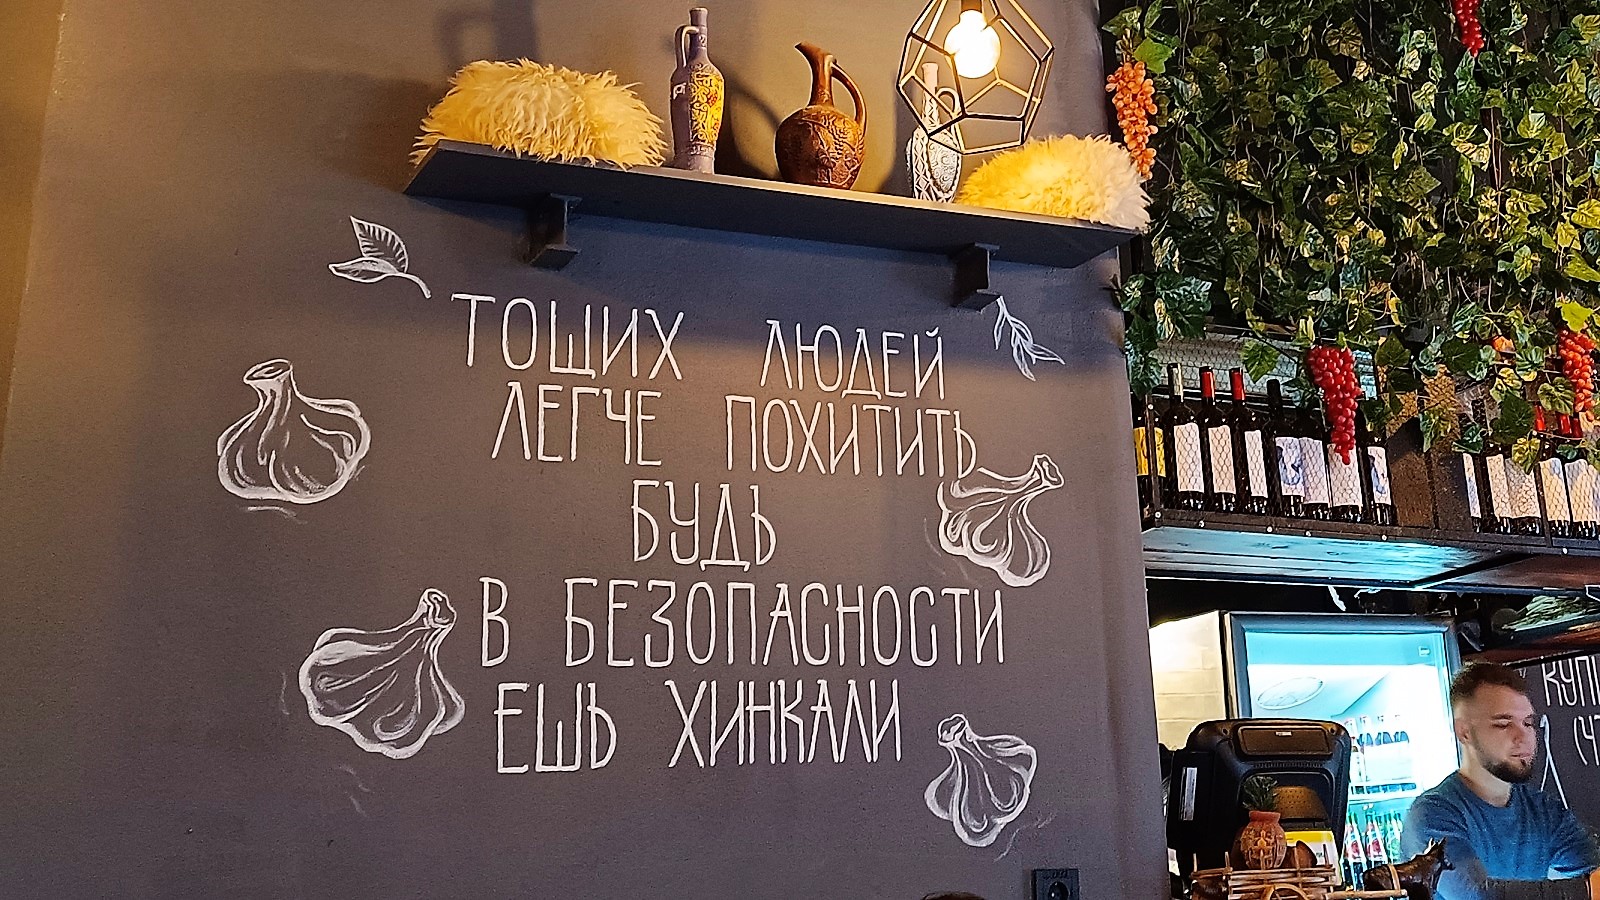 ТОЩИХ ЛЮДЕЙ
ЛЕГЧЕ ПОХИТИТЬ
БУДЬ
В БЕЗОПАСНОСТИ
ЕШЬ ХИНКАЛИ